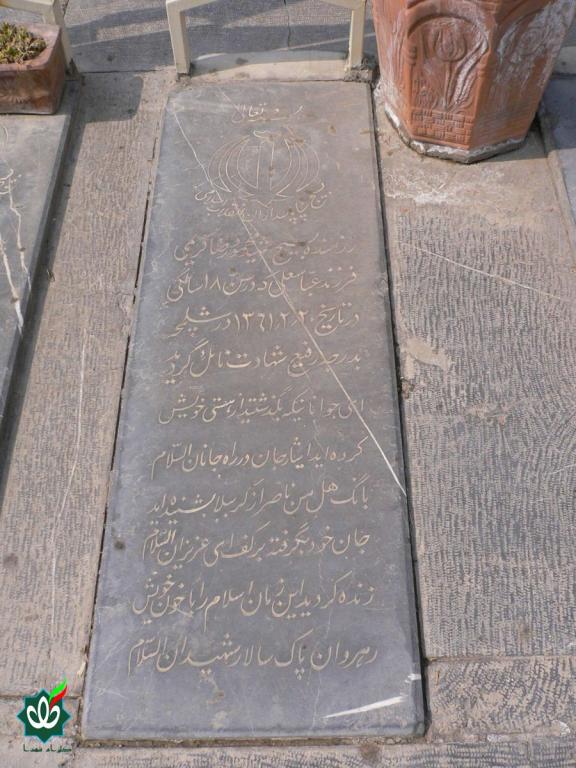 بسمه تعالی
رزمنده بسیج شهید محمدرضا کریمی
فرزند عباسعلی که در سن ۱۸ سالگی
در تاریخ ۱۳۶۱/۲/۲۰ در شلمچه
بدرجه رفیع شهادت نائل گردید
ای جوانانیکه بگذشتید از هستی خویش
کرده اید ایثار جان در راه جانان السلام
بانگ هل من ناصر از کربلا بشنیده اید
جان خود بگرفته بر کف ای عزیزان السلام
زنده کردید این زمان اسلام را با خون خویش
رهروان پاک سالار شهیدان السلام